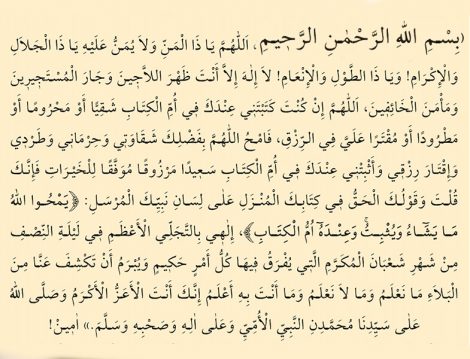 (بِسْمِ اللهِ الرَّحْمٰنِ الرَّحِيمِ، اَللّٰهُمَّ يَا ذَا الْمَنِّ وَلَا يُمَنُّ عَلَيْهِ يَا ذَا الْجَلَالِ
وَالْإِكْرَامِ! وَيَا ذَا الطَّوْلِ وَالْإِنْعَامِ! لَا إِلٰهَ إِلَّا أَنْتَ ظَهَرَ اللَّاجِينَ وَجَارَ الْمُسْتَجِيرِينَ
وَمَأْمَنَ الْخَائِفِينَ، اَللّٰهُمَّ إِنْ كُنْتَ كَتَبْتَنِي عِنْدَكَ فِي أُمِّ الْكِتَابِ شَقِيًّا أَوْ مَحْرُومًا أَوْ
مَطْرُودًا أَوْ مُقْتَرًا عَلَيَّ فِي الرِّزْقِ، فَامْحُ اللّٰهُمَّ بِفَضْلِكَ شَقَاوَتِي وَحِرْمَانِي وَطَرْدِي
وَإِقْتَارَ رِزْقِي وَأَثْبِتْنِي عِنْدَكَ فِي أُمِّ الْكِتَابِ سَعِيدًا مَرْزُوقًا مُوَفَّقًا لِلْخَيْرَاتِ فَإِنَّكَ
قُلْتَ وَقَوْلُكَ الْحَقُّ فِي كِتَابِكَ الْمُنْزَلِ عَلَى لِسَانِ نَبِيِّكَ الْمُرْسَلِ: ﴿يَمْحُوا اللهُ
مَا يَشَٓاءُ وَيُثْبِتُۚ وَعِنْدَهُٓ اُمُّ الْكِتَابِ﴾، إِلٰهِي بِالتَّجَلِّي الْأَعْظَمِ فِي لَيْلَةِ النِّصْفِ
مِنْ شَهْرِ شَعْبَانَ الْمُكَرَّمِ الَّتِي يُفْرَقُ فِيهَا كُلُّ أَمْرٍ حَكِيمٍ وَيُبْرَمُ أَنْ تَكْشِفَ عَنَّا مِنَ
الْبَلَاءِ مَا نَعْلَمُ وَمَا لَا نَعْلَمُ وَمَا أَنْتَ بِهِ أَعْلَمُ إِنَّكَ أَنْتَ الْأَعَزُّ الْأَكْرَمُ وَصَلَّى اللهُ
عَلَى سَيِّدِنَا مُحَمَّدِنِ النَّبِيِّ الْأُمِّيِّ وَعَلَى اٰلِهِ وَصَحْبِهِ وَسَلَّمَ.» اٰمِينْ!